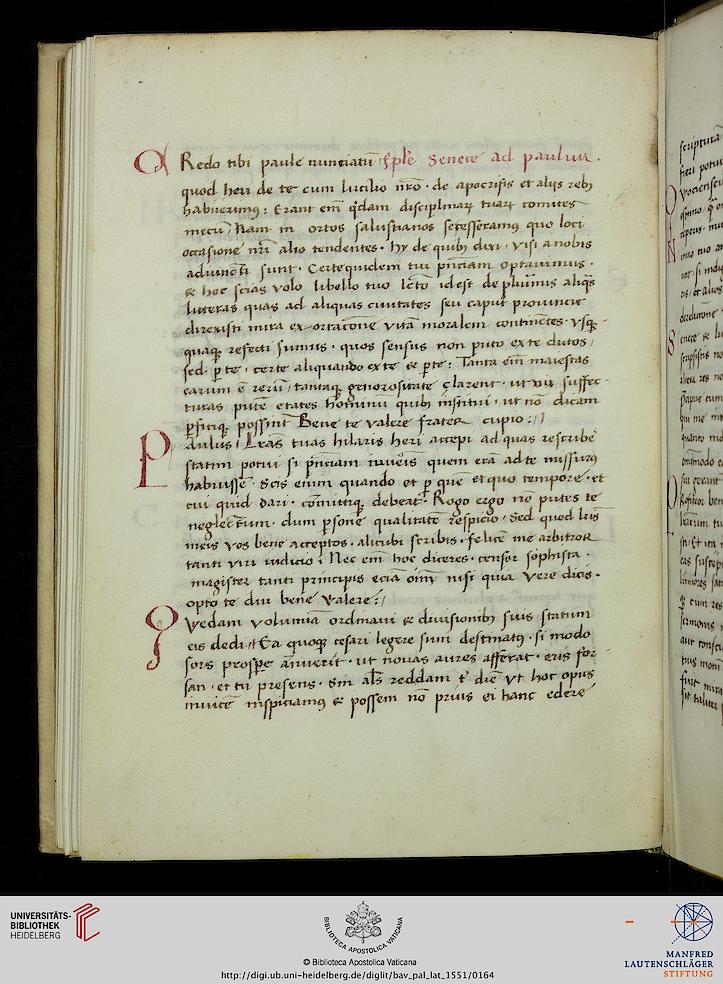 CRedo tibi paule nunciatū Epl'e Senece ad paulum.
quod heri de te cum lucilio nr̄o · de apocrifis et alijs rebꝫ
habuerimꝰ : Erant em̄ qͥdam disciplinaꝝ tuaꝝ comites
mecū Nam in ortos salustianos secesseramꝰ quo loci
occasione nr̄i alio tendentes · hy de quibꝫ dixi · visi a nobis
adiuncti sunt · Certe quidem tui pn̄ciam optauimus ·
& hoc scias volo libello tuo lc̄to id est de plurimis aliqͥs
litteras quas ad aliquas ciuitates seu caput prouincie
direxisti mira exortacōne vitā moralem continētes · vsqꝫ
quaqꝫ refecti sumus · quos sensus non puto ex te dictos /
sed ꝑ te · certe aliquando ex te & ꝑ te : Tanta em̄ maiestas
earum ē rerū / tantaqꝫ generositate clarent · ut vix suffec-
turas putē etates hoīminū quibꝫ institui · ut nō dicam
ꝑficiqꝫ possint Bene te valere frater cupio :
Paulus / Lrās tuas hilaris heri accepi ad quas rescribē
statim potui si pn̄ciam iuuēis quem erā ad te missurꝰ
habuisse · Scis enim quando et ꝑ que et quo tempore · et
cui quid dari · cōmittiqꝫ debeat · Rogo ergo ne putes te
neglectum · dum ꝑsone qualitatē respicio · Sed quod lrīs
meis vos bene acceptos · alicubi scribis · felicē me arbitror
tanti viri iudicio i Nec em̄ hoc diceres · censor sophista ·
magister tanti principis eciā om̄i nisi quia vere dicis ·
opto te diu bene valere :
Quedam volumia ordinaui & diuisionibꝫ suis statum
eis dedi · Ea quoqꝫ cesari legere sum destinatꝰ · si modo
sors prospe annuerit · ut nouas aures afferat · eris for-
san · et tu presens · Sin als̄ reddam tͥ diē vt hoc opus
inuicē inspiciamꝰ & possem nō prius ei hanc edere
UNIVERSITÄTS-
BIBLIOTHEK
HEIDELBERG
BIBLIOTECA APOSTOLICA VATICANA
© Biblioteca Apostolica Vaticana
http://digi.ub.uni-heidelberg.de/diglit/bav_pal_lat_1551/0164
MANFRED
LAUTENSCHLÄGER
STIFTUNG